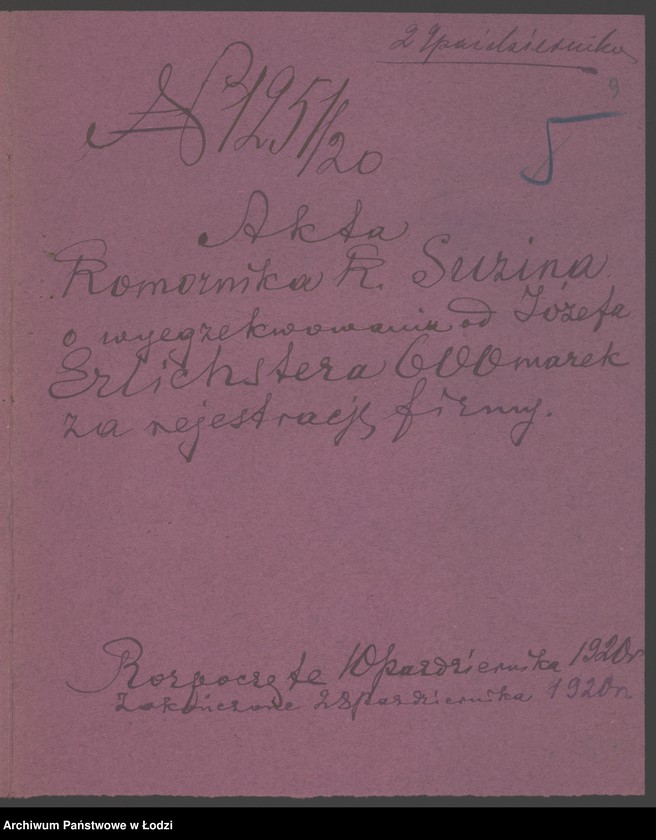 29 października
9
№ 1251/20
5
Akta
Komornika K. Suzina
o wyegzekwowaniu od Józefa
Erlichstera 600 marek
za rejestrację firmy.
Rozpoczęte 10 października 1920 r
Zakończone 28 października 1920 r
Archiwum Państwowe w Łodzi